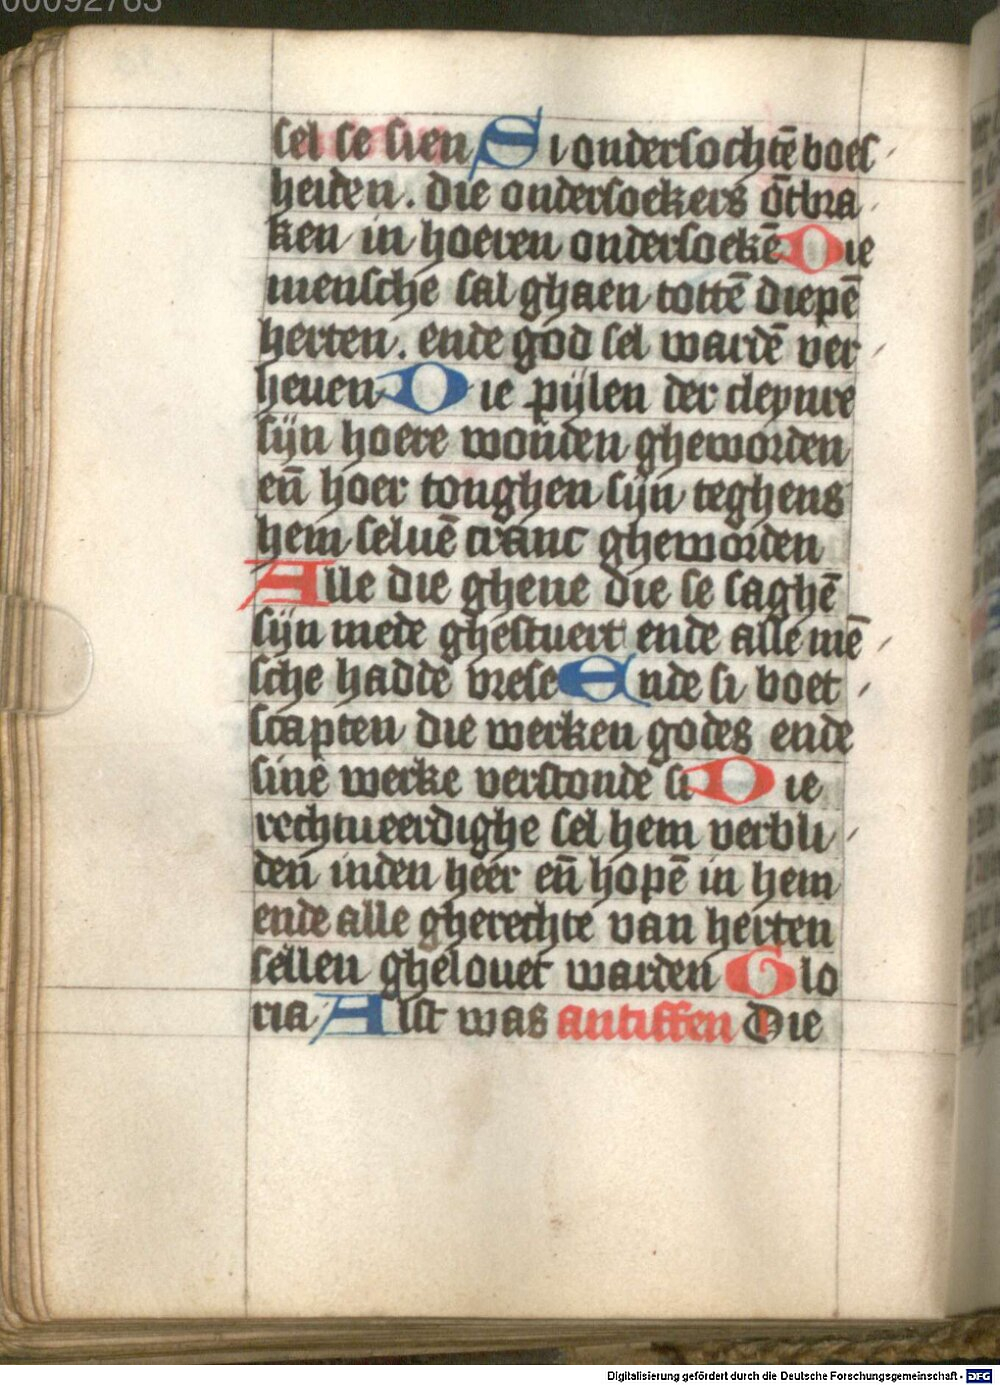 00092763
sel se sien Si ondersochtē boes
heiden. die ondersoekers ōtbra
ken in hoeren ondersoekē Die
mensche sal ghaen tottē diepē
herten. ende god sel wardē ver
heuen Die pijlen der cleynre
sijn hoere wonden gheworden
eñ hoer tonghen sijn teghens
hem seluē cranc gheworden
Alle die ghene die se saghē
sijn mede ghestuert ende alle mē
sche hadde vrese Ende si boet
scapten die werken godes ende
sine werke verstonde si Die
rechtueerdighe sel hem verbli
den inden heer eñ hopē in hem
ende alle gherechte van herten
sellen ghelouet warden Glo
ria Alst was antiffen Die
Digitalisierung gefördert durch die Deutsche Forschungsgemeinschaft - DFG